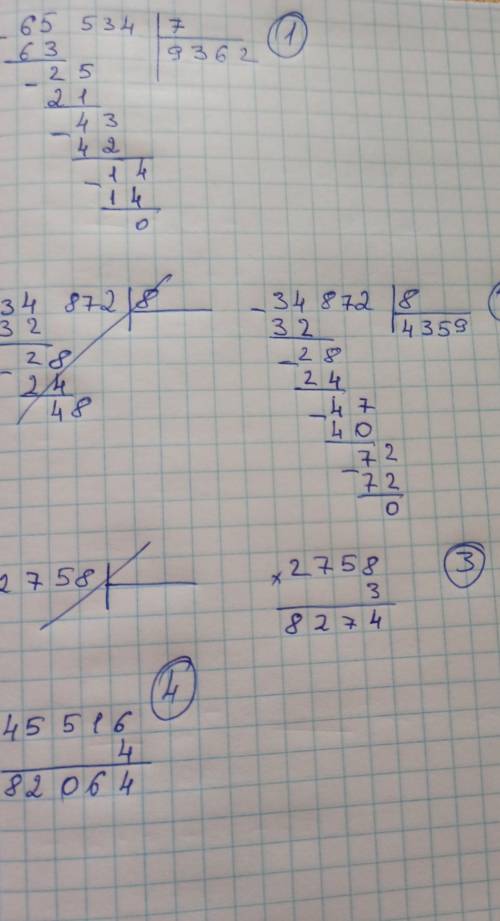 - 65 534 | 7 ①
63 9362
- 25
21
- 43
42
- 14
14
0
34 872 | 8
32
- 28
24
48
- 34 872 | 8
32 4359
- 28
24
- 47
40
- 72
72
0
2758
× 2758 ③
3
8274
④
45 516
4
82 064